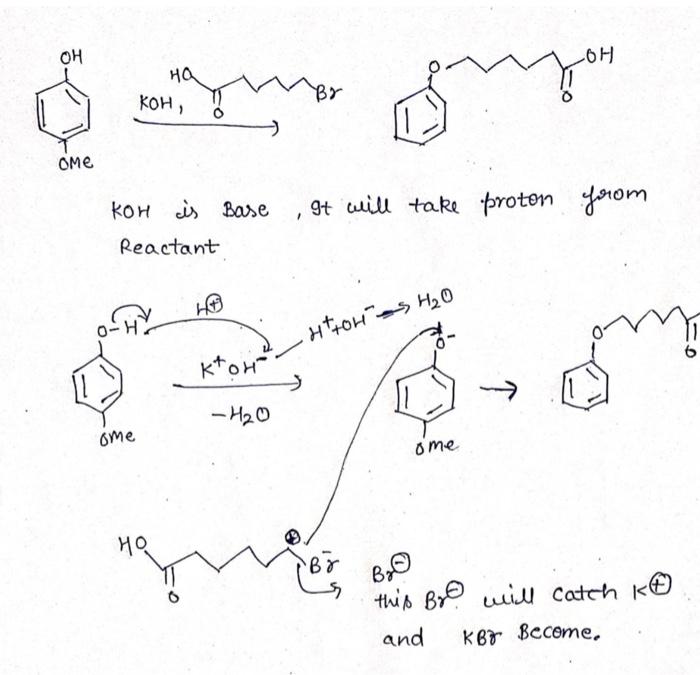 OH
HO
O
Br
KOH,
OMe
O
OH
O
KOH is Base , It will take proton from
Reactant
O-H
H⊕
K⁺OH⁻
-H₂O
OMe
H⁺+OH⁻→H₂O
O⁻
OMe
O
O
HO
O
⊕
Br⁻
Br⊖
this Br⊖ will catch K⊕
and KBr Become.